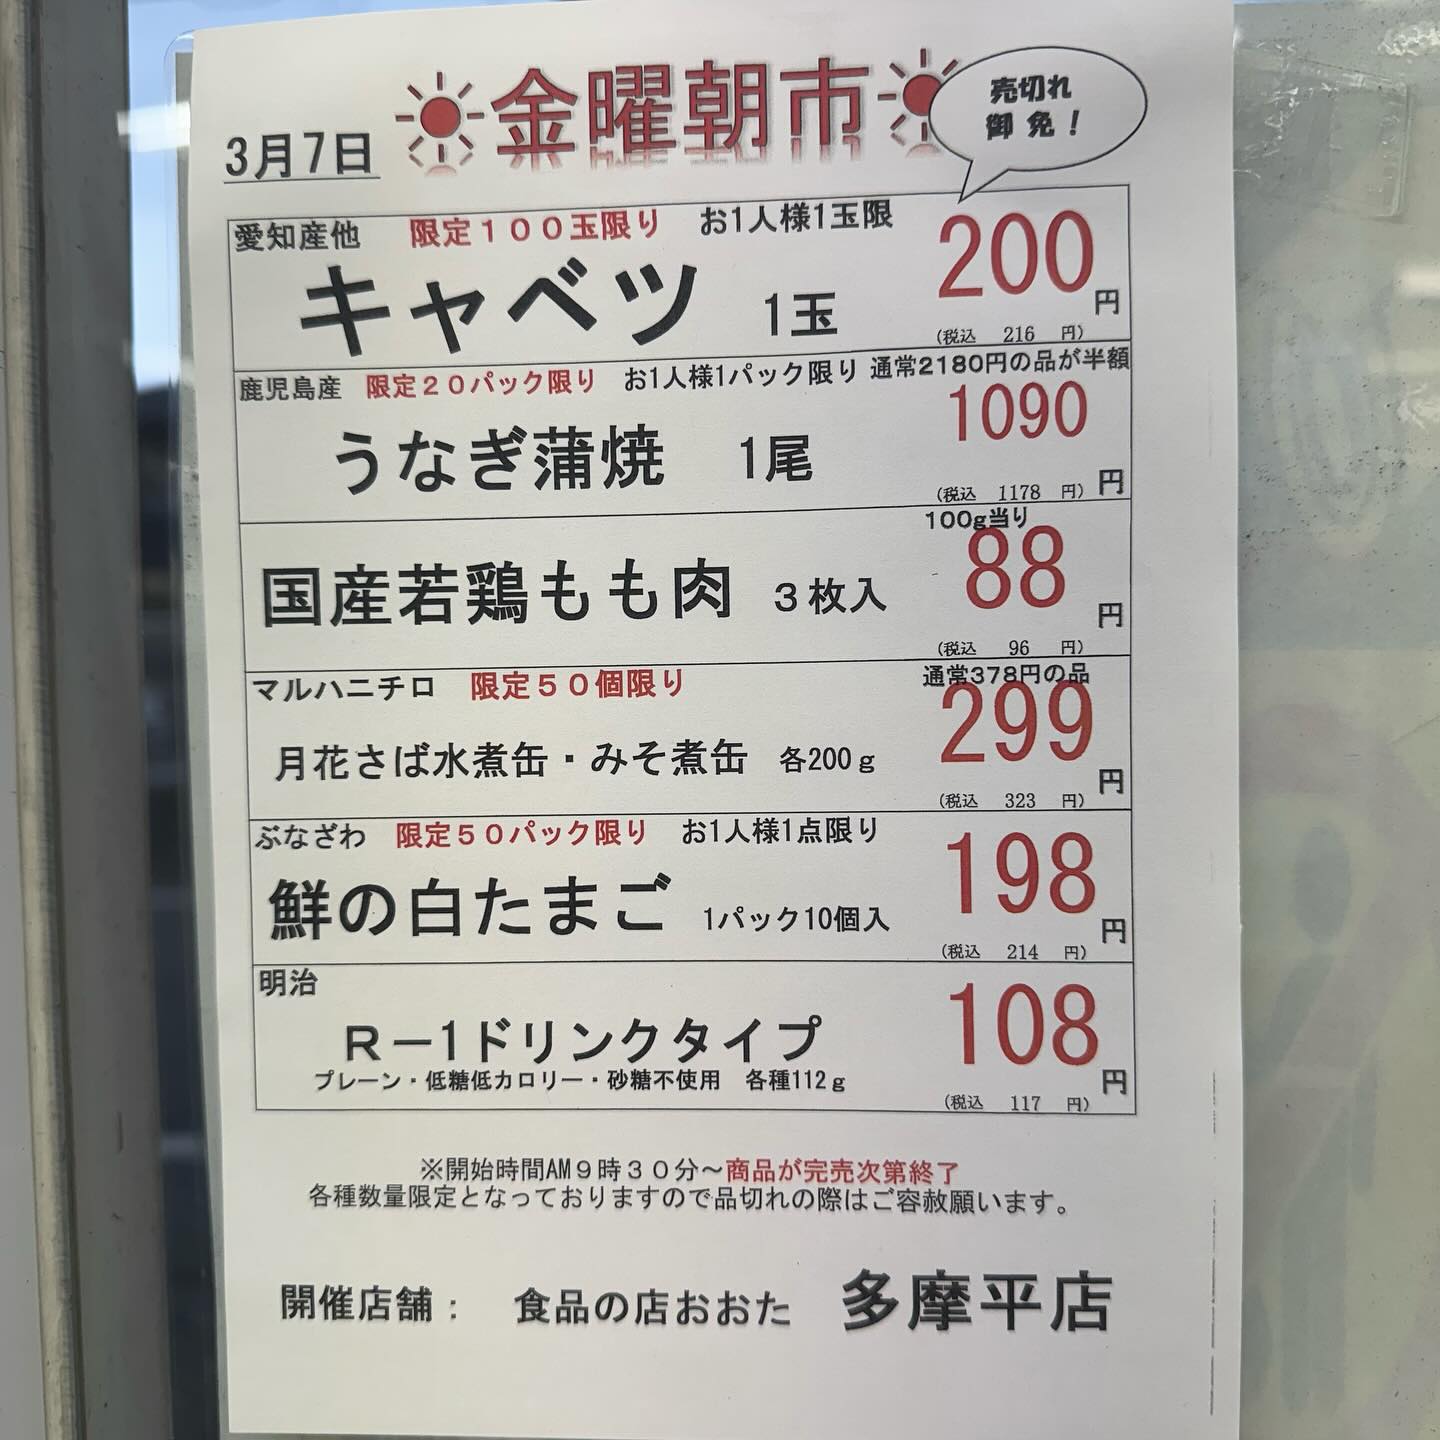 3月7日 金曜朝市
売切れ
御免！
愛知産他 限定１００玉限り お1人様1玉限
キャベツ 1玉
200円
(税込 216 円)
鹿児島産 限定２０パック限り お1人様1パック限り 通常2180円の品が半額
うなぎ蒲焼 1尾
1090円
(税込 1178 円)
100g当り
国産若鶏もも肉 ３枚入
88円
(税込 96 円)
マルハニチロ 限定５０個限り 通常378円の品
月花さば水煮缶・みそ煮缶 各200ｇ
299円
(税込 323 円)
ぶなざわ 限定５０パック限り お1人様1点限り
鮮の白たまご 1パック10個入
198円
(税込 214 円)
明治
Ｒ－1ドリンクタイプ
プレーン・低糖低カロリー・砂糖不使用 各種112ｇ
108円
(税込 117 円)
※開始時間AM９時３０分～商品が完売次第終了
各種数量限定となっておりますので品切れの際はご容赦願います。
開催店舗： 食品の店おおた 多摩平店